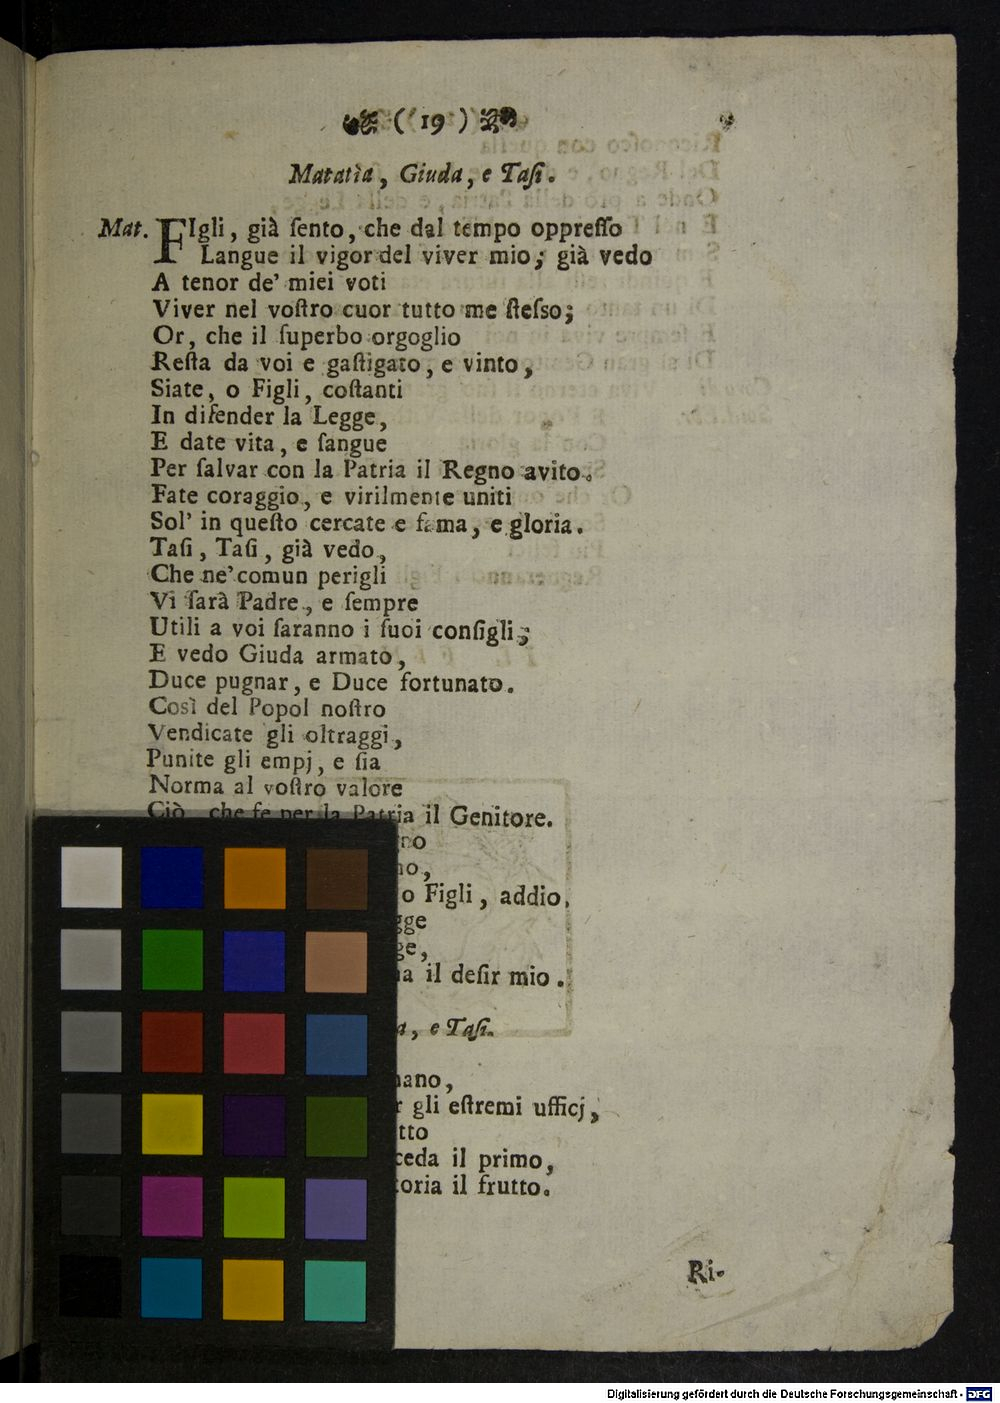 ( 19 )
Matatìa, Giuda, e Tasi.
Mat. FIgli, già ſento, che dal tempo oppreſſo
Langue il vigor del viver mio; già vedo
A tenor de' miei voti
Viver nel voſtro cuor tutto me ſteſso;
Or, che il ſuperbo orgoglio
Reſta da voi e gaſtigato, e vinto,
Siate, o Figli, coſtanti
In difender la Legge,
E date vita, e ſangue
Per ſalvar con la Patria il Regno avito.
Fate coraggio, e virilmente uniti
Sol' in queſto cercate e fama, e gloria.
Taſi, Taſi, già vedo,
Che ne' comun perigli
Vi ſarà Padre, e ſempre
Utili a voi ſaranno i ſuoi conſigli;
E vedo Giuda armato,
Duce pugnar, e Duce fortunato.
Così del Popol noſtro
Vendicate gli oltraggi,
Punite gli empj, e ſia
Norma al voſtro valore
Ciò, che fe per la Patria il Genitore.
o Figli, addio.
il deſir mio.
, e Taſi.
gli eſtremi ufficj,
il primo,
il frutto.
Ri-
Digitalisierung gefördert durch die Deutsche Forschungsgemeinschaft - DFG